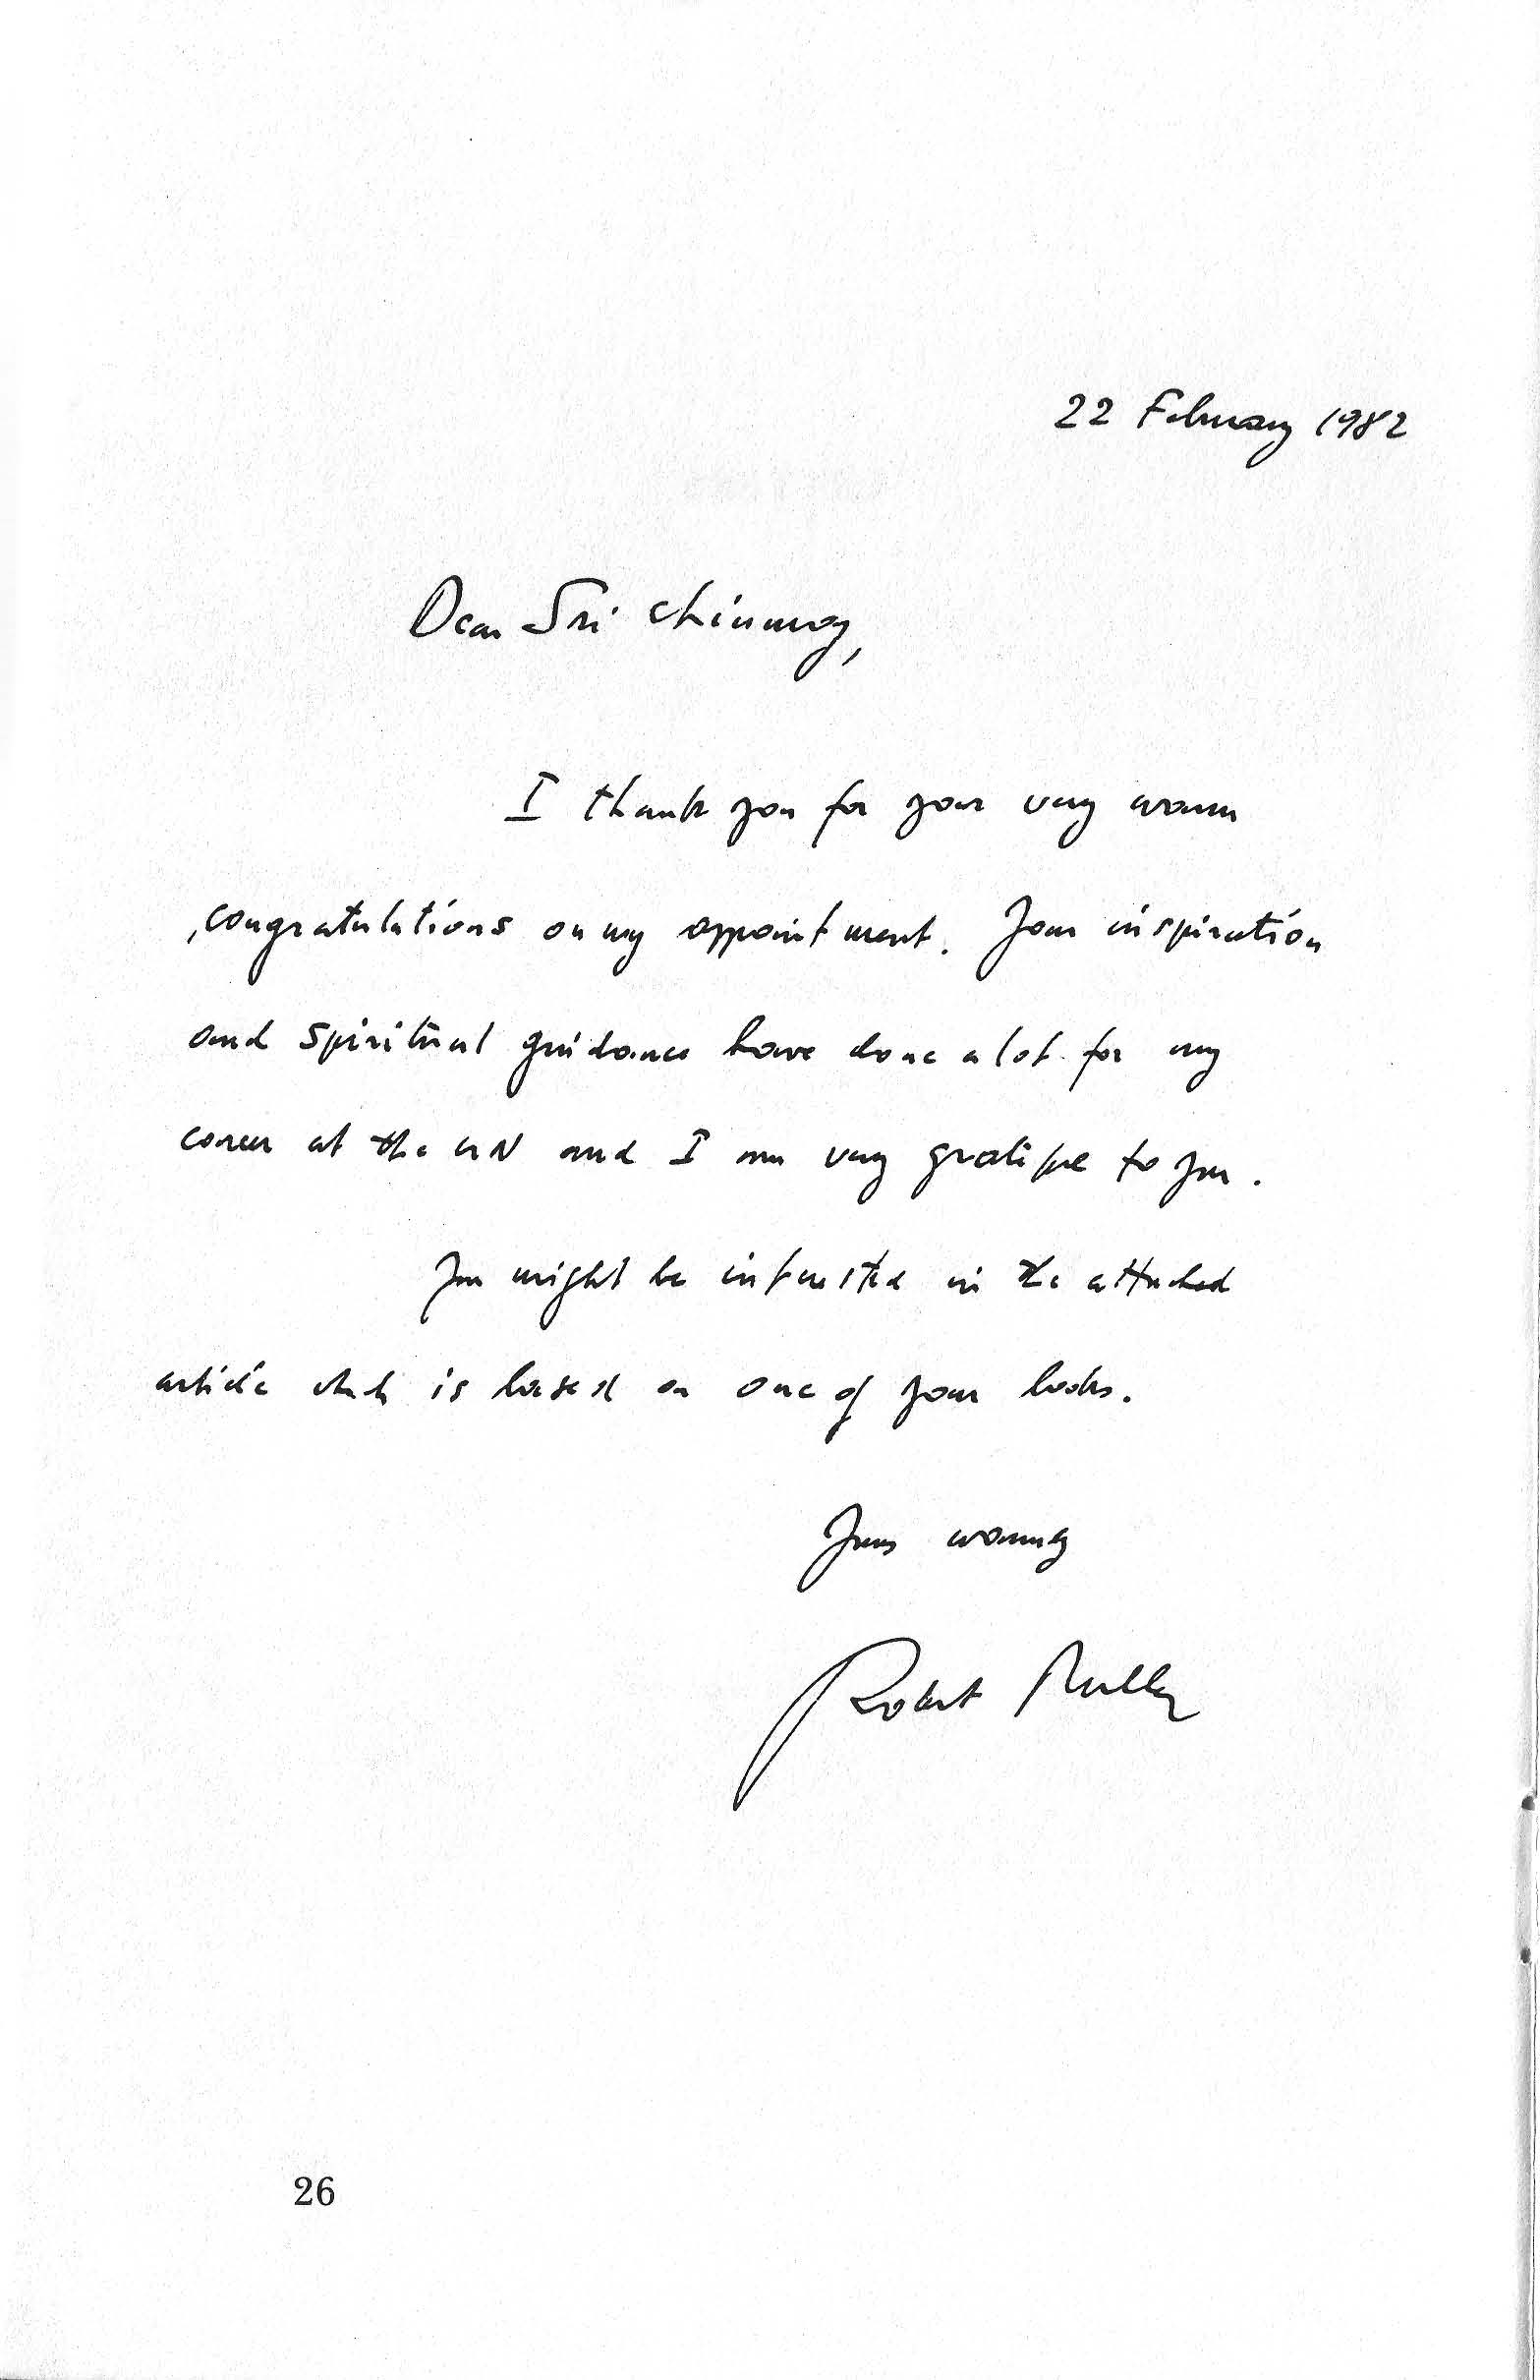 22 February 1982
Dear Sri Chinmoy,
I thank you for your very warm
congratulations on my appointment. Your inspiration
and spiritual guidance have done a lot for my
career at the UN and I am very grateful to you.
You might be interested in the attached
article which is based on one of your books.
Yours warmly
Robert Muller
26